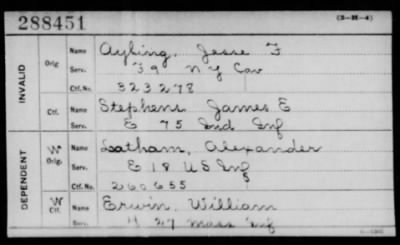 288451 (3-38-4)
INVALID
Orig. Name Ayling, Jesse F
Serv. F 9 N Y Cav
Ctf. No. 323278
Ctf. Name Stephens James E
Serv. E 75 Ind Inf
DEPENDENT
W Orig. Name Latham, Alexander
Serv. E 18 U S Inf
Ctf. No. 260655
W Ctf. Name Erwin, William
Serv. H 27 Mass Inf